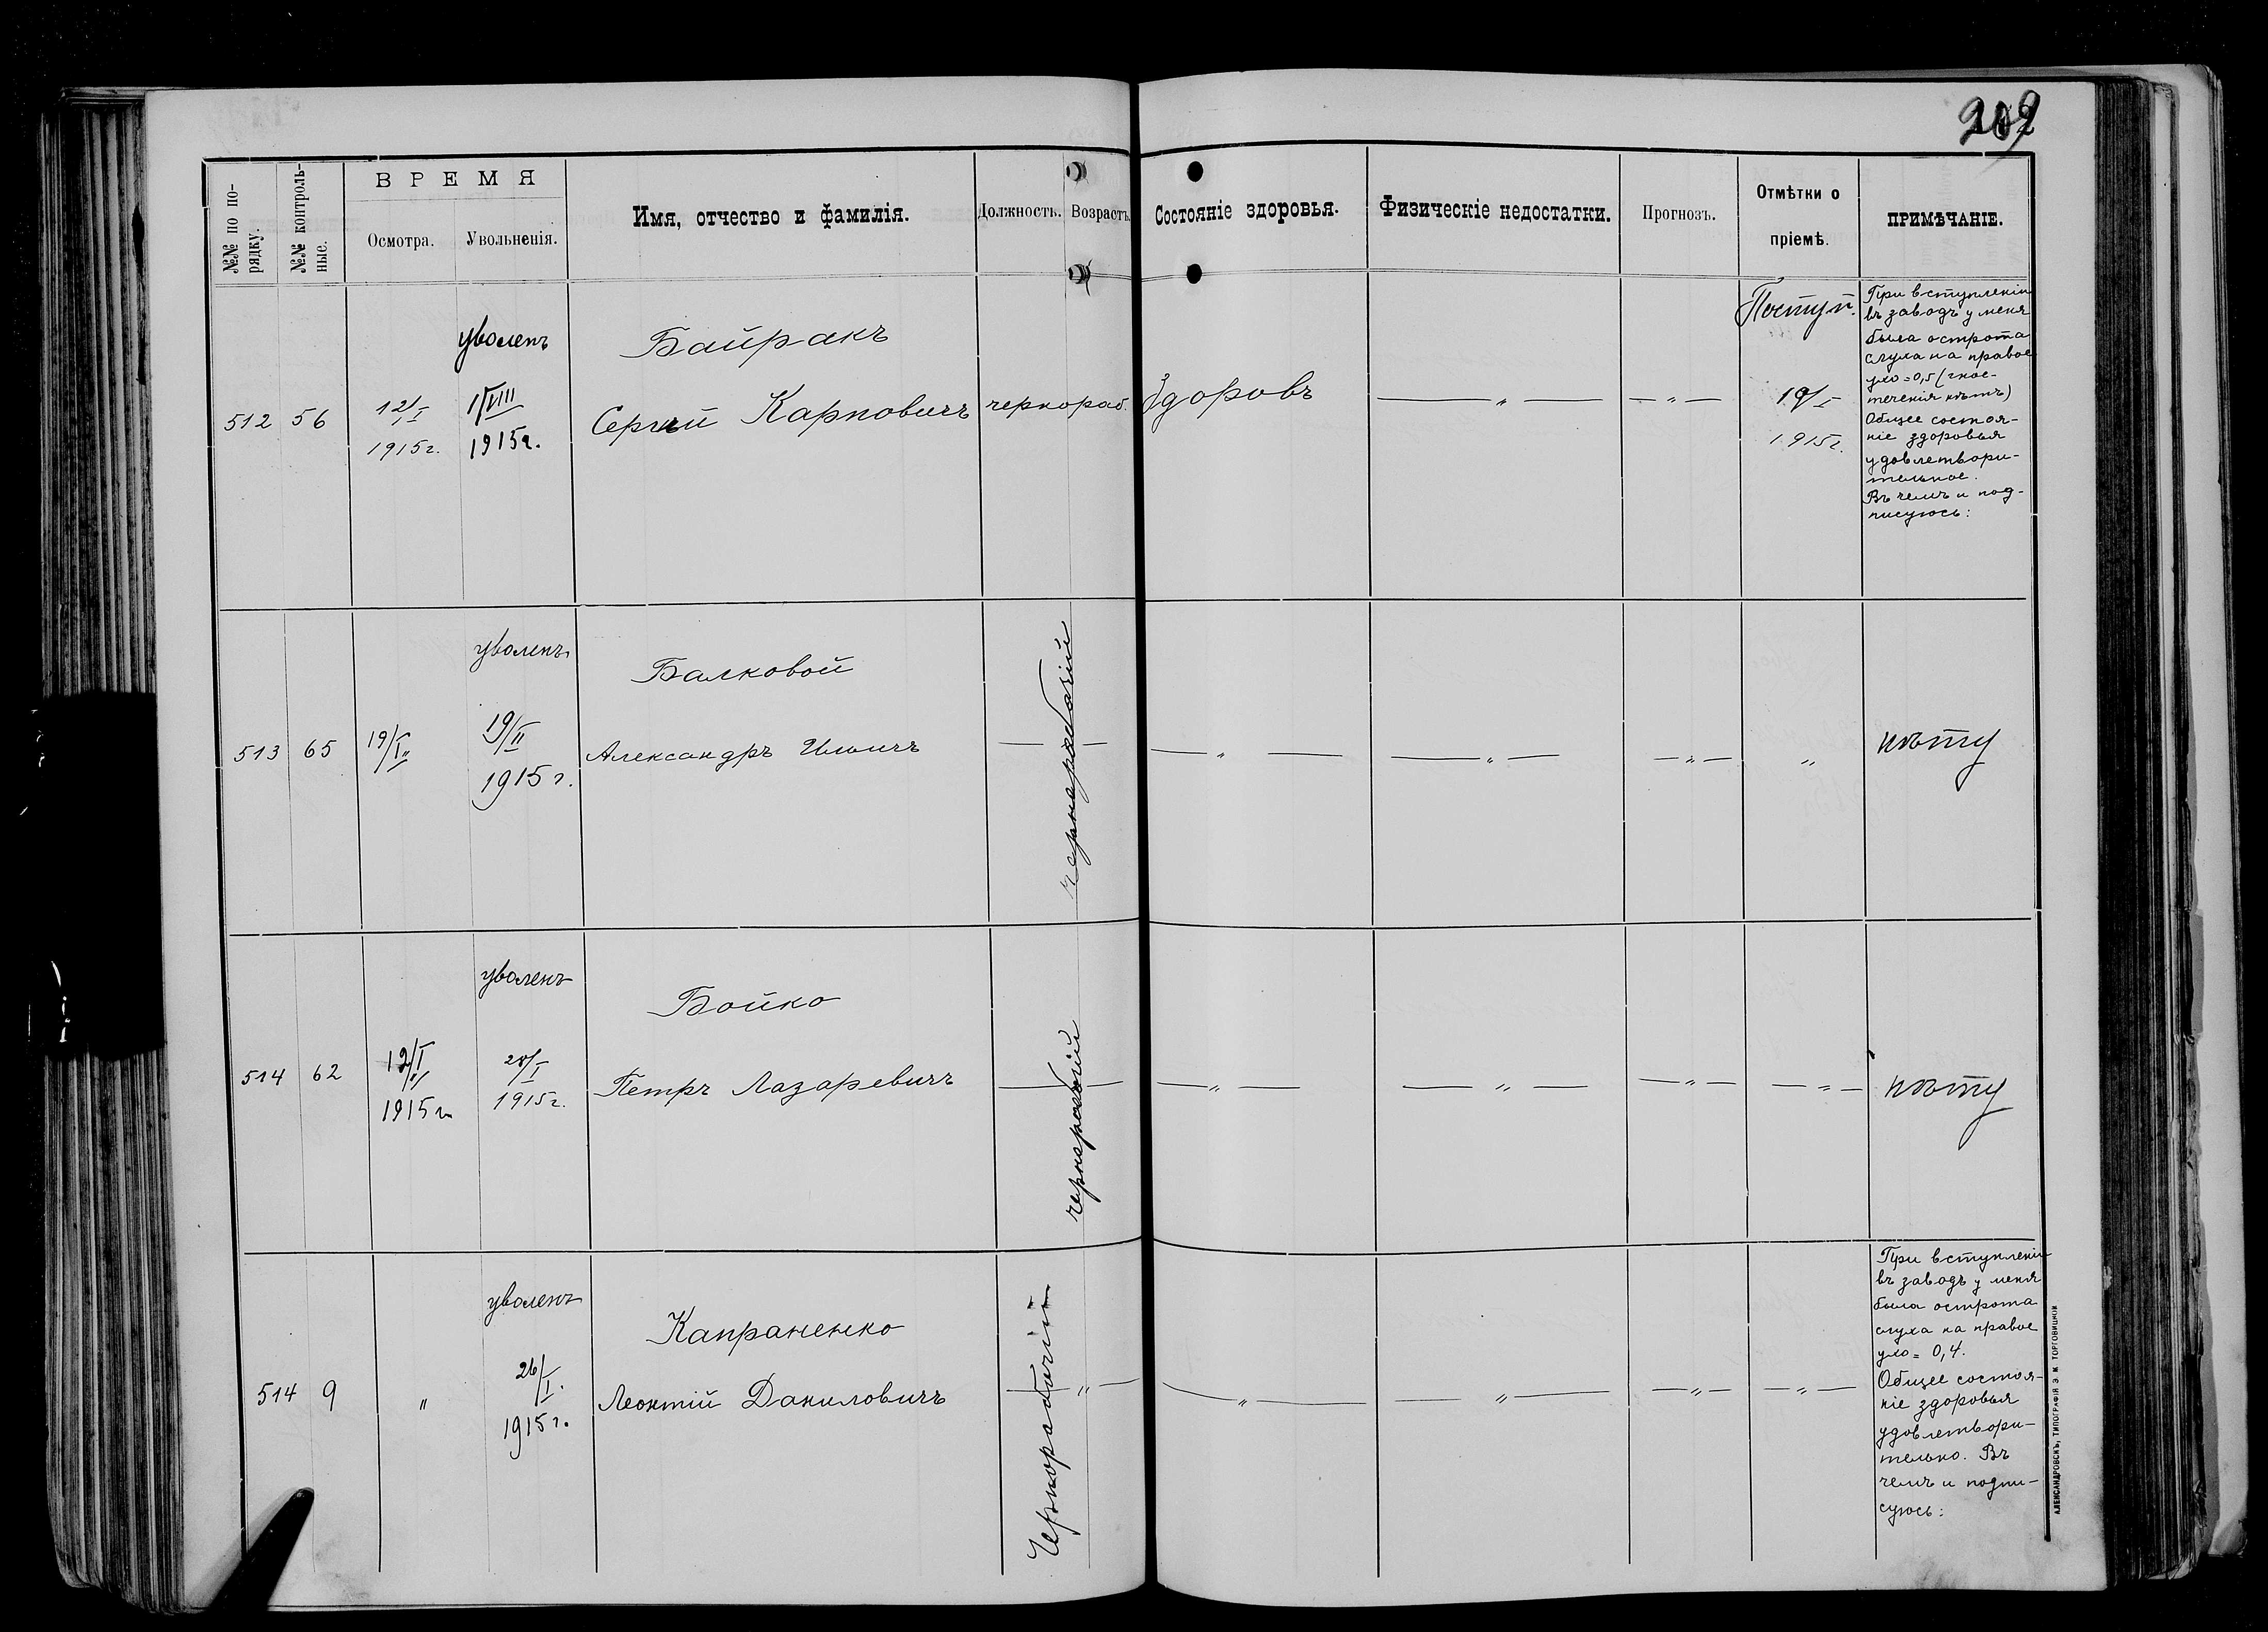 В Р Е М Я
№№ по по-
рядку.
№№ контроль-
ные.
Осмотра.
Увольненія.
Имя, отчество и фамилія.
Должность.
Возрастъ.
Состояніе здоровья.
Физическіе недостатки.
Прогнозъ.
Отмѣтки о
пріемѣ.
ПРИМѢЧАНІЕ.
512
56
12/I
1915г.
уволенъ
1/VIII
1915г.
Байракъ
Сергѣй Карповичъ
чернораб.
Здоровъ
— „ —
— „ —
Поступ.
1915г.
При вступленіи
въ заводъ у меня
была острота
слуха на правое
ухо = 0,5 (гное-
теченія нѣтъ)
Общее состоя-
ніе здоровья
удовлетвори-
тельное.
Въ чемъ и под-
писуюсь:
513
65
19/I „
уволенъ
19/II
1915г.
Балковой
Александръ Ильичъ
чернорабочій
— „ —
— „ —
— „ —
„
нѣту
514
62
12/I
1915г
уволенъ
28/I
1915г.
Бойко
Петръ Лазаревичъ
чернорабочій
— „ —
— „ —
— „ —
— „ —
нѣту
514
9
„
уволенъ
26/I.
1915г.
Капраненко
Леонтій Даниловичъ
Чернорабочій
— „ —
— „ —
— „ —
— „ —
— „ —
При вступленіи
въ заводъ у меня
была острота
слуха на правое
ухо = 0,4.
Общее состоя-
ніе здоровья
удовлетвори-
тельно. Въ
чемъ и подпи-
суюсь:
АЛЕКСАНДРОВСКЪ, ТИПОГРАФІЯ Э. М. ТОРГОВИЦКІЙ